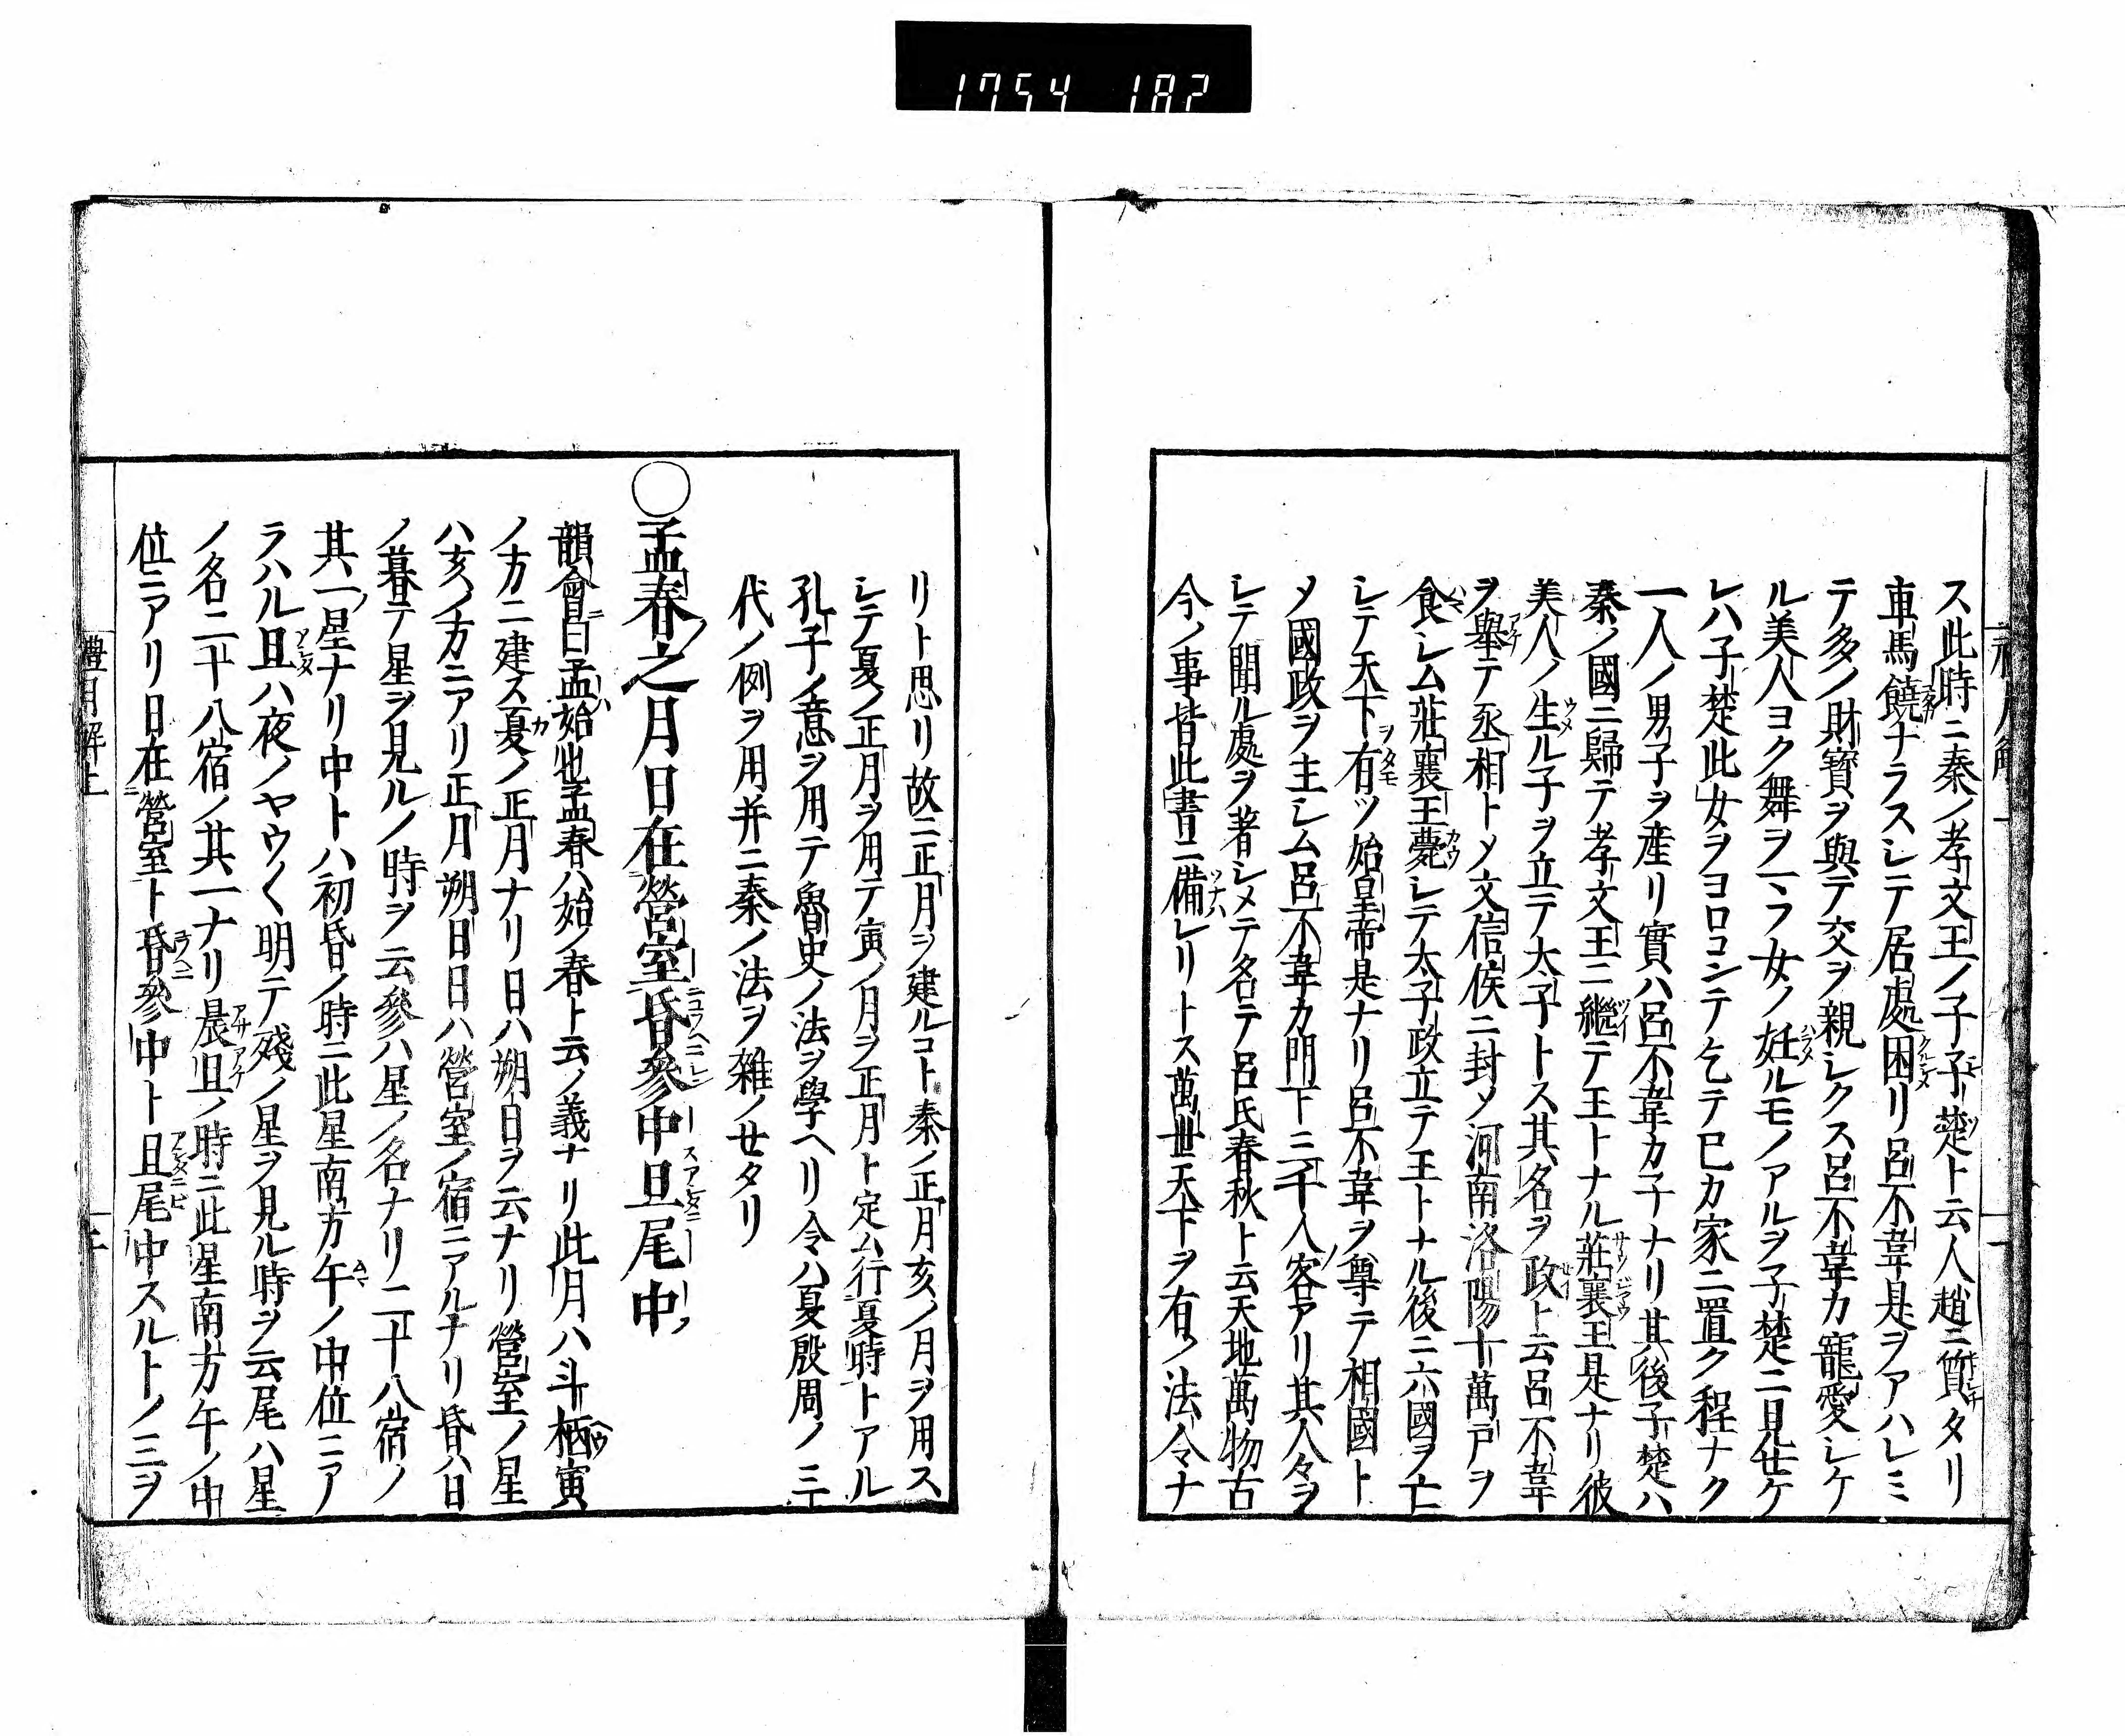 1754 182
ス此時ニ秦ノ孝文王ノ子子楚ト云人趙ニ質タリ
車馬饒ナラスシテ居處困リ呂不韋是ヲアハレミ
テ多ノ財寳ヲ與テ交ヲ親シクス呂不韋カ寵愛シケ
ル美人ヨク舞ヲマフ女ノ妊ルモノアルヲ子楚ニ見セケ
レハ子楚此女ヲヨロコンテ乞テ已カ家ニ置ク程ナク
一人ノ男子ヲ産リ實ハ呂不韋カ子ナリ其後子楚ハ
秦ノ國ニ歸テ孝文王ニ繼テ王トナル莊襄王是ナリ彼
美人ノ生ル子ヲ立テ大子トス其名ヲ政ト云呂不韋
ヲ舉テ丞相トメ文信侯ニ封メ河南洛陽十萬戸ヲ
食シム莊襄王薨シテ太子政立テ王トナル後ニ六國ヲ亡
シテ天下有ツ始皇帝是ナリ呂不韋ヲ尊テ相國ト
メ國政ヲ主シム呂不韋カ門下三千人ノ客アリ其人々ヲ
シテ聞ル處ヲ著シメテ名テ呂氏春秋ト云天地萬物古
今ノ事皆此書ニ備レリトス萬世天下ヲ有ツ法令ナ
リト思リ故ニ正月ヲ建ルコト秦ノ正月亥ノ月ヲ用ス
シテ夏ノ正月ヲ用テ寅ノ月ヲ正月ト定ム行夏時トアル
孔子ノ意ヲ用テ魯史ノ法ヲ學ヘリ令ハ夏殷周ノ三
代ノ例ヲ用并ニ秦ノ法ヲ雜ノセタリ
○孟春之月日在營室昏參中旦尾中
韻會曰孟始也孟春ハ始ノ春ト云ノ義ナリ此月ハ斗柄寅
ノ方ニ建ス夏ノ正月ナリ日ハ朔日ヲ云ナリ營室ノ星
ハ亥ノ方ニアリ正月朔日日ハ營室ノ宿ニアルナリ昏ハ日
ノ暮テ星ヲ見ルノ時ヲ云參ハ星ノ名ナリ二十八宿ノ
其一星ナリ中トハ初昏ノ時ニ此星南方午ノ中位ニア
ラハル旦ハ夜ノヤウ〱明テ殘ノ星ヲ見ル時ヲ云尾ハ星
ノ名二十八宿ノ其一ナリ晨旦ノ時ニ此星南方午ノ中
位ニアリ日在營室ト昏參中ト旦尾中スルトノ三ヲ
禮月解上